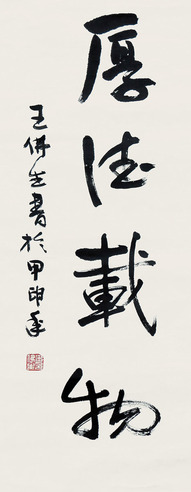 厚德載物
王佛生書於甲申年